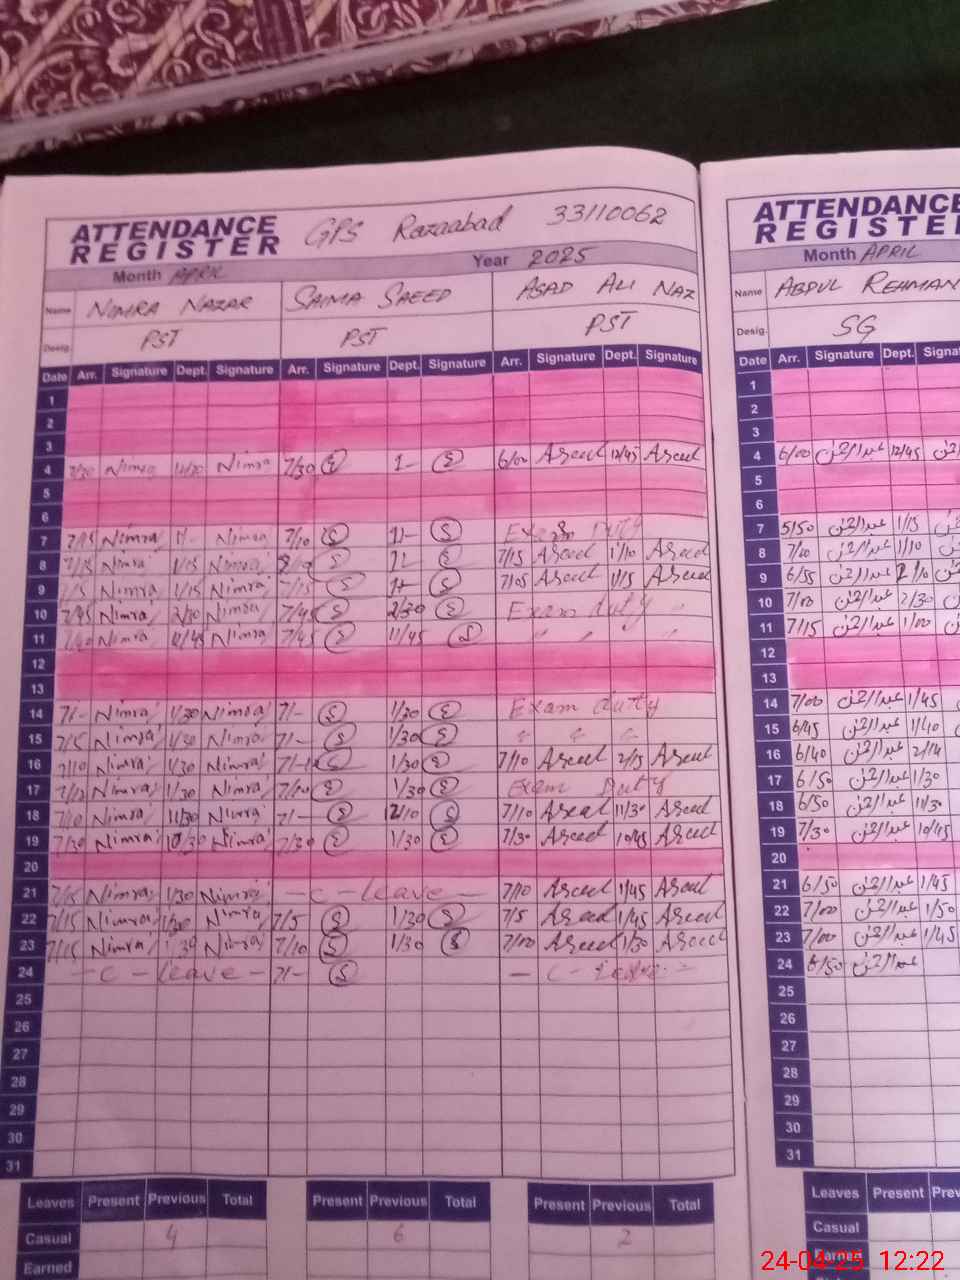 ATTENDANCE REGISTER GPS Razaabad 33110062
Month APRIL Year 2025
Name NIMRA NAZAR SAIMA SAEED ASAD ALI NAZ
Desig. PST PST PST
Date Arr. Signature Dept. Signature Arr. Signature Dept. Signature Arr. Signature Dept. Signature
1
2
3
4 Nimra Nimra 7/30 1- 6/00 Asad 12/45 Asad
5
6
7 7/15 Nimra 1/- Nimra 7/10 1- Exam Duty
8 7/15 Nimra 1/15 Nimra 7/15 Asad 1/10 Asad
9 Nimra 1/15 Nimra 7/15 7/05 Asad 1/15 Asad
10 7/45 Nimra 2/30 Nimra 7/45 2/30 Exam duty "
11 Nimra Nimra 7/45 11/45 " " "
12
13
14 7/- Nimra 1/30 Nimra 7/- 1/30 Exam duty
15 7/15 Nimra 1/30 Nimra 7/- 1/30
16 7/10 Nimra 1/30 Nimra 7/- 1/30 7/10 Asad 2/15 Asad
17 Nimra 1/30 Nimra 1/30 Exam Duty
18 7/10 Nimra 11/30 Nimra 7/- 7/10 Asad 11/30 Asad
19 7/30 Nimra Nimra 7/30 1/30 7/30 Asad 10/45 Asad
20
21 7/15 Nimra 1/30 Nimra - C - Leave - 7/10 Asad 1/45 Asad
22 7/15 Nimra 1/30 Nimra 7/5 1/30 7/5 Asad 1/45 Asad
23 7/15 Nimra Nimra 7/10 1/30 7/00 Asad 1/30 Asad
24 - C - Leave - 7/- - C - Leave -
25
26
27
28
29
30
31
Leaves Present Previous Total Present Previous Total Present Previous Total
Casual 4 6 2
Earned
ATTENDANCE
REGISTER
Month APRIL
Name ABDUL REHMAN
Desig. SG
Date Arr. Signature Dept.
1
2
3
4 6/00 عبدالرحمٰن 12/45
5
6
7 5/50 عبدالرحمٰن 1/15
8 7/10 عبدالرحمٰن 1/10
9 6/55 عبدالرحمٰن
10 7/00 عبدالرحمٰن 2/30
11 7/15 عبدالرحمٰن 1/00
12
13
14 7/00 عبدالرحمٰن 1/45
15 6/45 عبدالرحمٰن 1/40
16 6/40 عبدالرحمٰن 2/14
17 6/50 عبدالرحمٰن 1/30
18 6/50 عبدالرحمٰن 11/30
19 7/30 عبدالرحمٰن 10/45
20
21 6/50 عبدالرحمٰن 1/45
22 7/00 عبدالرحمٰن 1/50
23 7/00 عبدالرحمٰن 1/45
24 6/50 عبدالرحمٰن
25
26
27
28
29
30
31
Leaves Present
Casual
Earned
24-04-25 12:22